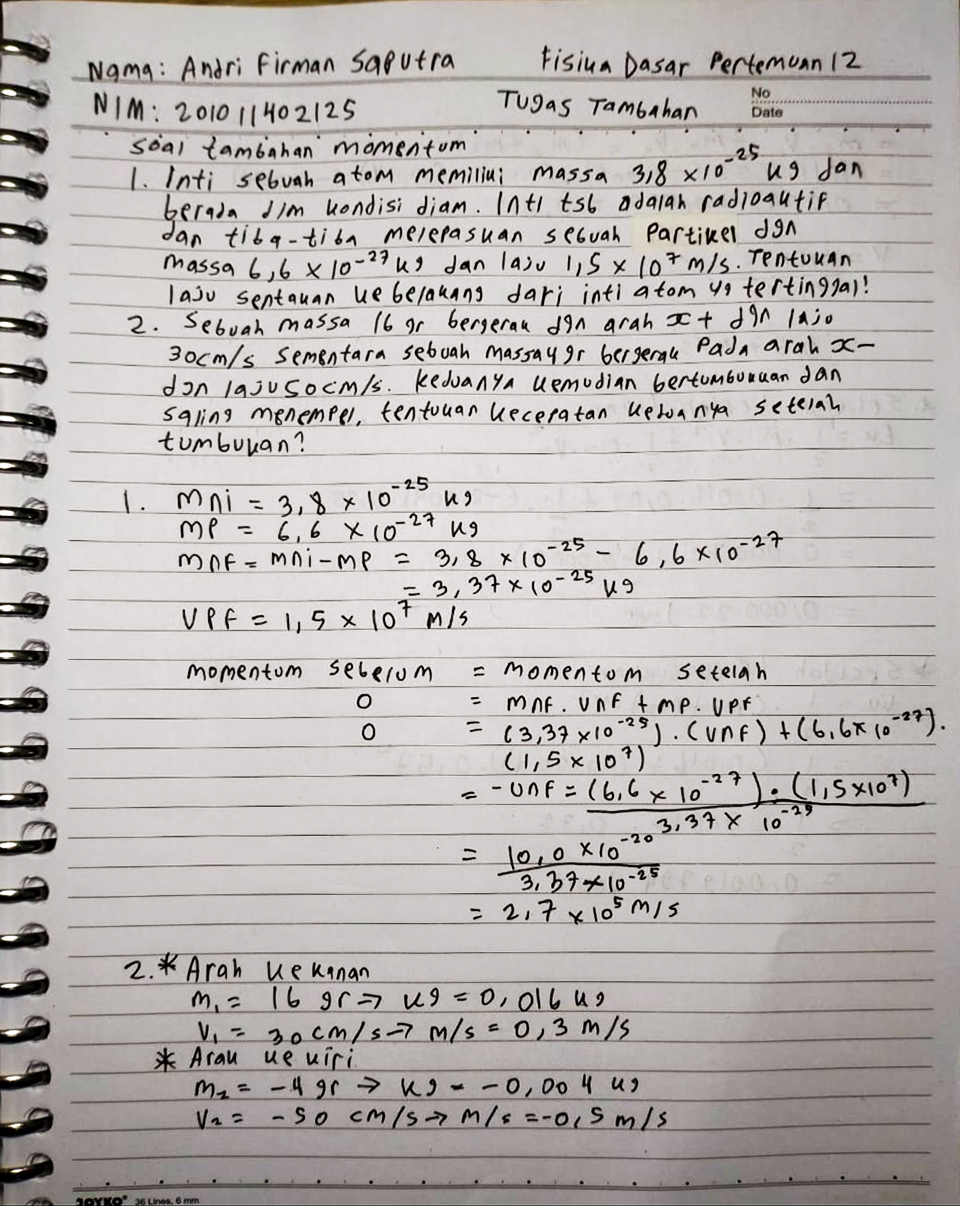 Nama: Andri Firman Saputra Fisika Dasar Pertemuan 12
NIM: 201011402125 Tugas Tambahan No
Date
Soal tambahan momentum
1. Inti sebuah atom memiliki massa 3,8 × 10⁻²⁵ kg dan
berada dlm kondisi diam. Inti tsb adalah radioaktif
dan tiba-tiba melepaskan sebuah Partikel dgn
massa 6,6 × 10⁻²⁷ kg dan laju 1,5 × 10⁷ m/s. Tentukan
laju sentakan ke belakang dari inti atom yg tertinggal!
2. Sebuah massa 16 gr bergerak dgn arah x+ dgn laju
30cm/s sementara sebuah massa 4 gr bergerak Pada arah x-
dgn laju 50cm/s. keduanya kemudian bertumbukan dan
saling menempel, tentukan kecepatan keduanya setelah
tumbukan?
1. Mni = 3,8 × 10⁻²⁵ kg
MP = 6,6 × 10⁻²⁷ kg
Mnf = Mni-MP = 3,8 × 10⁻²⁵ - 6,6 × 10⁻²⁷
= 3,37 × 10⁻²⁵ kg
VPf = 1,5 × 10⁷ m/s
momentum sebelum = momentum setelah
0 = Mnf. Vnf + MP. VPf
0 = (3,37 × 10⁻²⁵). (Vnf) + (6,6 × 10⁻²⁷).
(1,5 × 10⁷)
= -Vnf = (6,6 × 10⁻²⁷) . (1,5 × 10⁷)
3,37 × 10⁻²⁵
= 10,0 × 10⁻²⁰
3,37 × 10⁻²⁵
= 2,7 × 10⁵ m/s
2. * Arah ke kanan
m₁ = 16 gr → kg = 0,016 kg
V₁ = 30 cm/s → m/s = 0,3 m/s
* Arak ke kiri
m₂ = -4 gr → kg = -0,004 kg
V₂ = -50 cm/s → m/s = -0,5 m/s
JOYKO® 36 Lines, 6 mm